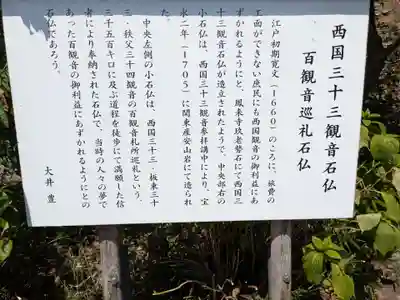 西国三十三観音石仏
百観音巡礼石仏
江戸初期寛文(1660)のころに、旅費の
工面ができない庶民にも西国観音の御利益にあ
ずかれるようにと、鳳来寺玖老勢石にて西国三
十三観音石仏が造立されたようで、中央部右の
小石仏は、西国三十三観音参拝講中により、宝
永二年(1705)に関東産安山岩にて造られ
た。
中央左側の小石仏は、西国三十三・板東三十
三・秩父三十四観音の百観音札所巡礼という、
三千五百キロに及ぶ道程を徒歩にて満願した信
者により奉納された石仏で、当時の人々の夢で
あった百観音の御利益にあずかれるようにとの
石仏であろう。
大井 豊